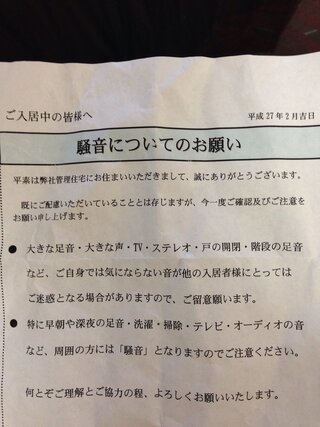 ご入居中の皆様へ
平成27年2月吉日
騒音についてのお願い
平素は弊社管理住宅にお住まいいただきまして、誠にありがとうございます。
既にご配慮いただいていることとは存じますが、今一度ご確認及びご注意を
お願い申し上げます。
● 大きな足音・大きな声・TV・ステレオ・戸の開閉・階段の足音
など、ご自身では気にならない音が他の入居者様にとっては
ご迷惑となる場合がありますので、ご留意願います。
● 特に早朝や深夜の足音・洗濯・掃除・テレビ・オーディオの音
など、周囲の方には「騒音」となりますのでご注意ください。
何とぞご理解とご協力の程、よろしくお願いいたします。